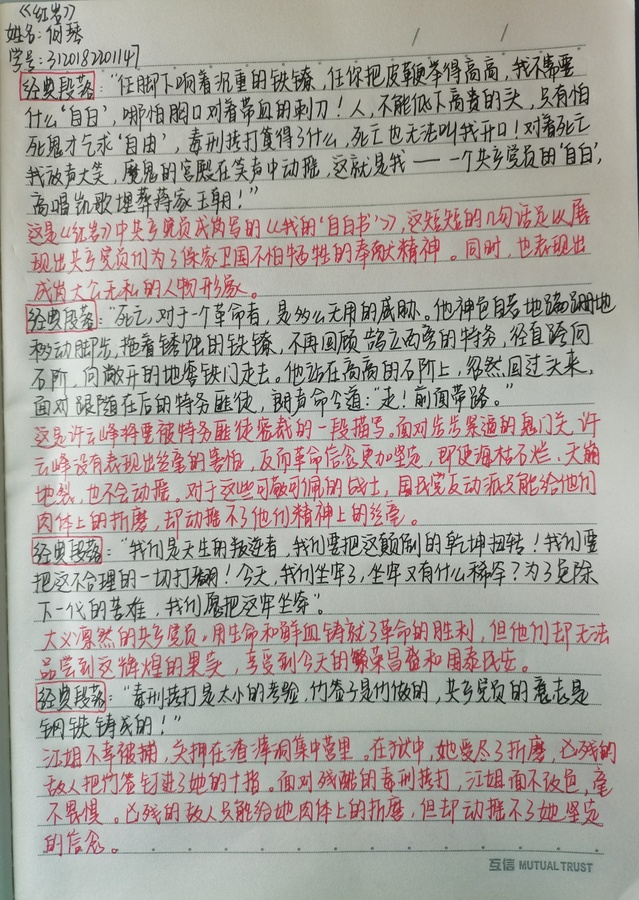 《红岩》
姓名:何琴
学号:3120182201147
经典段落:“任脚下响着沉重的铁镣,任你把皮鞭举得高高,我不需要
什么‘自白’,哪怕胸口对着带血的刺刀!人,不能低下高贵的头,只有怕
死鬼才乞求‘自由’,毒刑拷打算得了什么,死亡也无法叫我开口!对着死亡
我放声大笑,魔鬼的宫殿在笑声中动摇,这就是我——一个共产党员的‘自白’,
高唱凯歌埋葬蒋家王朝!”
这是《红岩》中共产党员成岗写的《我的‘自白书’》,这短短的几句话足以展
现出共产党员们为了保家卫国不怕牺牲的奉献精神。同时,也表现出
成岗大公无私的人物形象。
经典段落:“死亡,对于一个革命者,是多么无用的威胁。他神色自若地蹒跚地
移动脚步,拖着锈蚀的铁镣,不再回顾鹄立两旁的特务,径自跨向
石阶,向敞开的地窖铁门走去。他站在高高的石阶上,忽然回过头来,
面对跟随在后的特务匪徒,朗声命令道:“走!前面带路。”
这是许云峰将要被特务匪徒密裁的一段描写。面对步步紧逼的鬼门关,许
云峰没有表现出丝毫的害怕,反而革命信念更加坚定,即使海枯石烂、天崩
地裂,也不会动摇。对于这些可敬可佩的战士,国民党反动派只能给他们
肉体上的折磨,却动摇不了他们精神上的丝毫。
经典段落:“我们是天生的叛逆者,我们要把这颠倒的乾坤扭转!我们要
把这不合理的一切打翻!今天,我们坐牢了,坐牢又有什么稀罕?为了免除
下一代的苦难,我们愿把这牢坐穿”。
大义凛然的共产党员。用生命和鲜血铸就了革命的胜利,但他们却无法
品尝到这辉煌的果实,享受到今天的繁荣昌盛和国泰民安。
经典段落:“毒刑拷打是太小的考验,竹签子是竹做的,共产党员的意志是
钢铁铸成的!”
江姐不幸被捕,关押在渣滓洞集中营里。在狱中,她受尽了折磨,凶残的
敌人把竹签钉进了她的十指。面对残酷的毒刑拷打,江姐面不改色,毫
不畏惧。凶残的敌人只能给她肉体上的折磨,但却动摇不了她坚定
的信念。
互信 MUTUAL TRUST